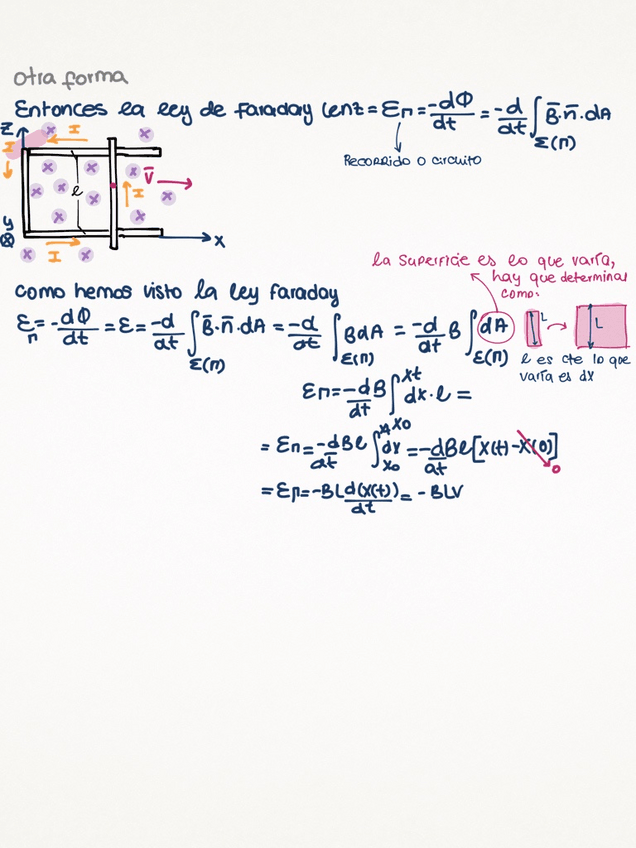 otra forma
Entonces la ley de Faraday Lenz = Ɛn = -dΦ/dt = -d/dt ∫Σ(Π) B̄·n̄·dA
Recorrido o circuito
Z I x
I x x x V̄ →
x x ℓ x I x
x x
y ⊗ x I x X
la superficie es lo que varía,
hay que determinar
como:
como hemos visto la ley Faraday
Ɛn = -dΦ/dt = Ɛ = -d/dt ∫Σ(Π) B̄·n̄·dA = -d/dt ∫Σ(Π) BdA = -d/dt B ∫Σ(Π) dA
L → L
ℓ es cte lo que
varía es dX
Ɛn = -d/dt B ∫x0^xt dx·ℓ =
= Ɛn = -d/dt Bℓ ∫x0 dx = -d/dt Bℓ [X(t) - X(0)] 0
= Ɛn = -BL d(X(t))/dt = - BLV